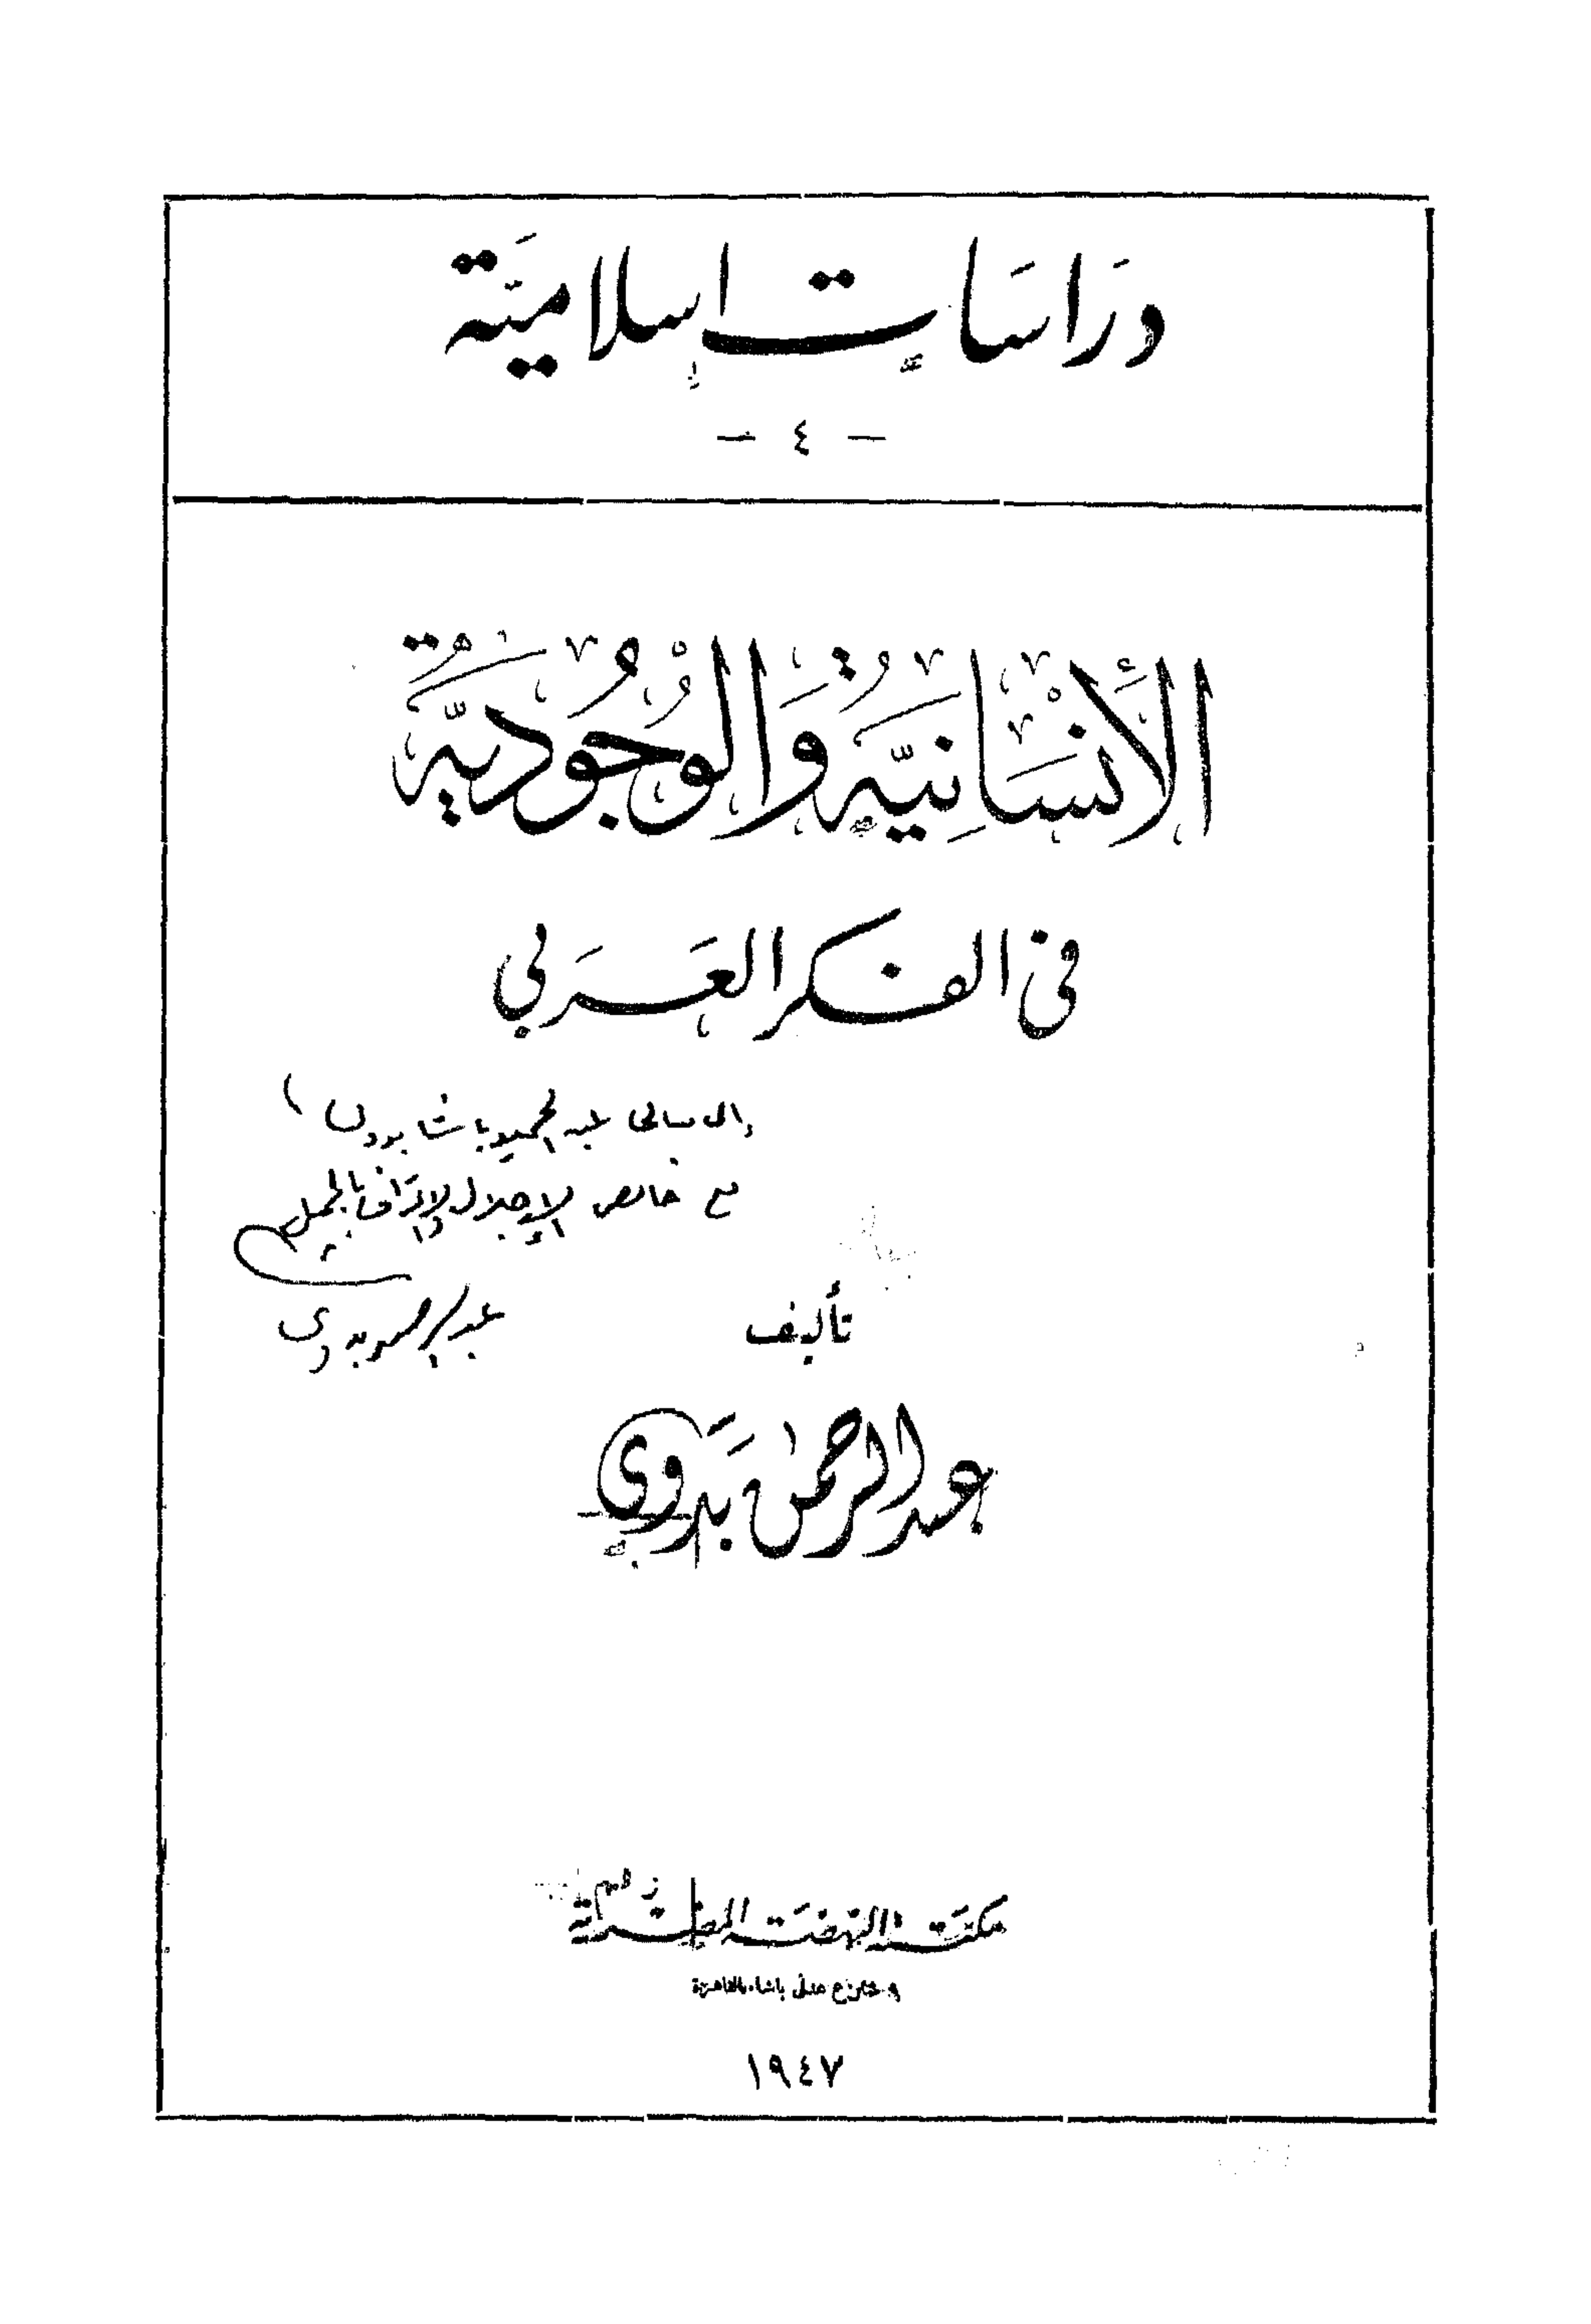 دراسات إسلامية
— ٤ —
الإنسانية والوجودية
في الفكر العربي
إلى معالي عبد الحميد باشا بدوي
مع خالص الإجلال والاعتراف بالجميل
عبد الرحمن بدوي
تأليف
عبد الرحمن بدوي
مكتبة النهضة المصرية
٩ شارع عدلي باشا بالقاهرة
١٩٤٧